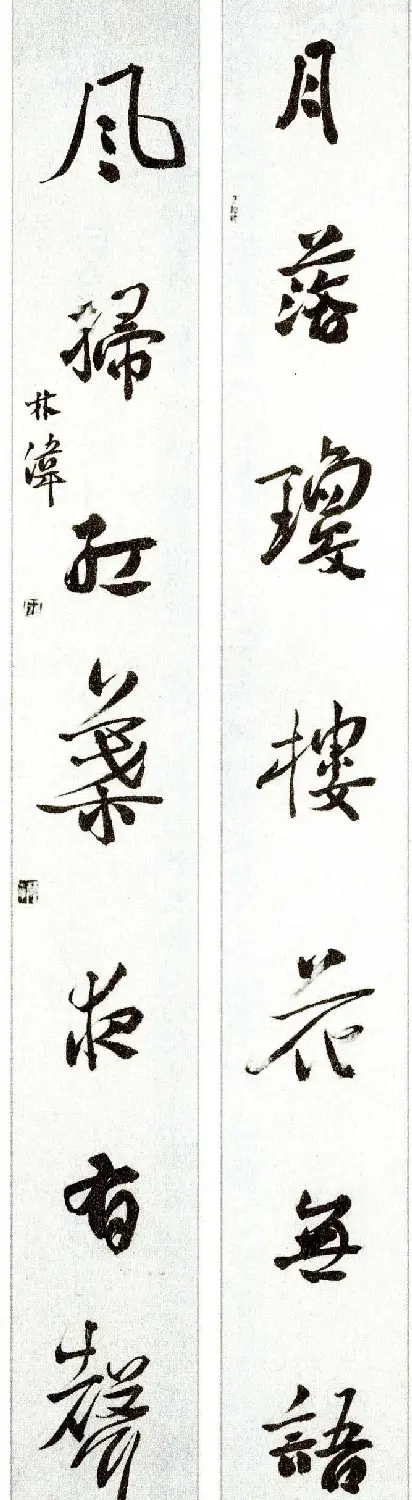 月落瓊樓花無語
風掃紅葉夜有聲
林偉